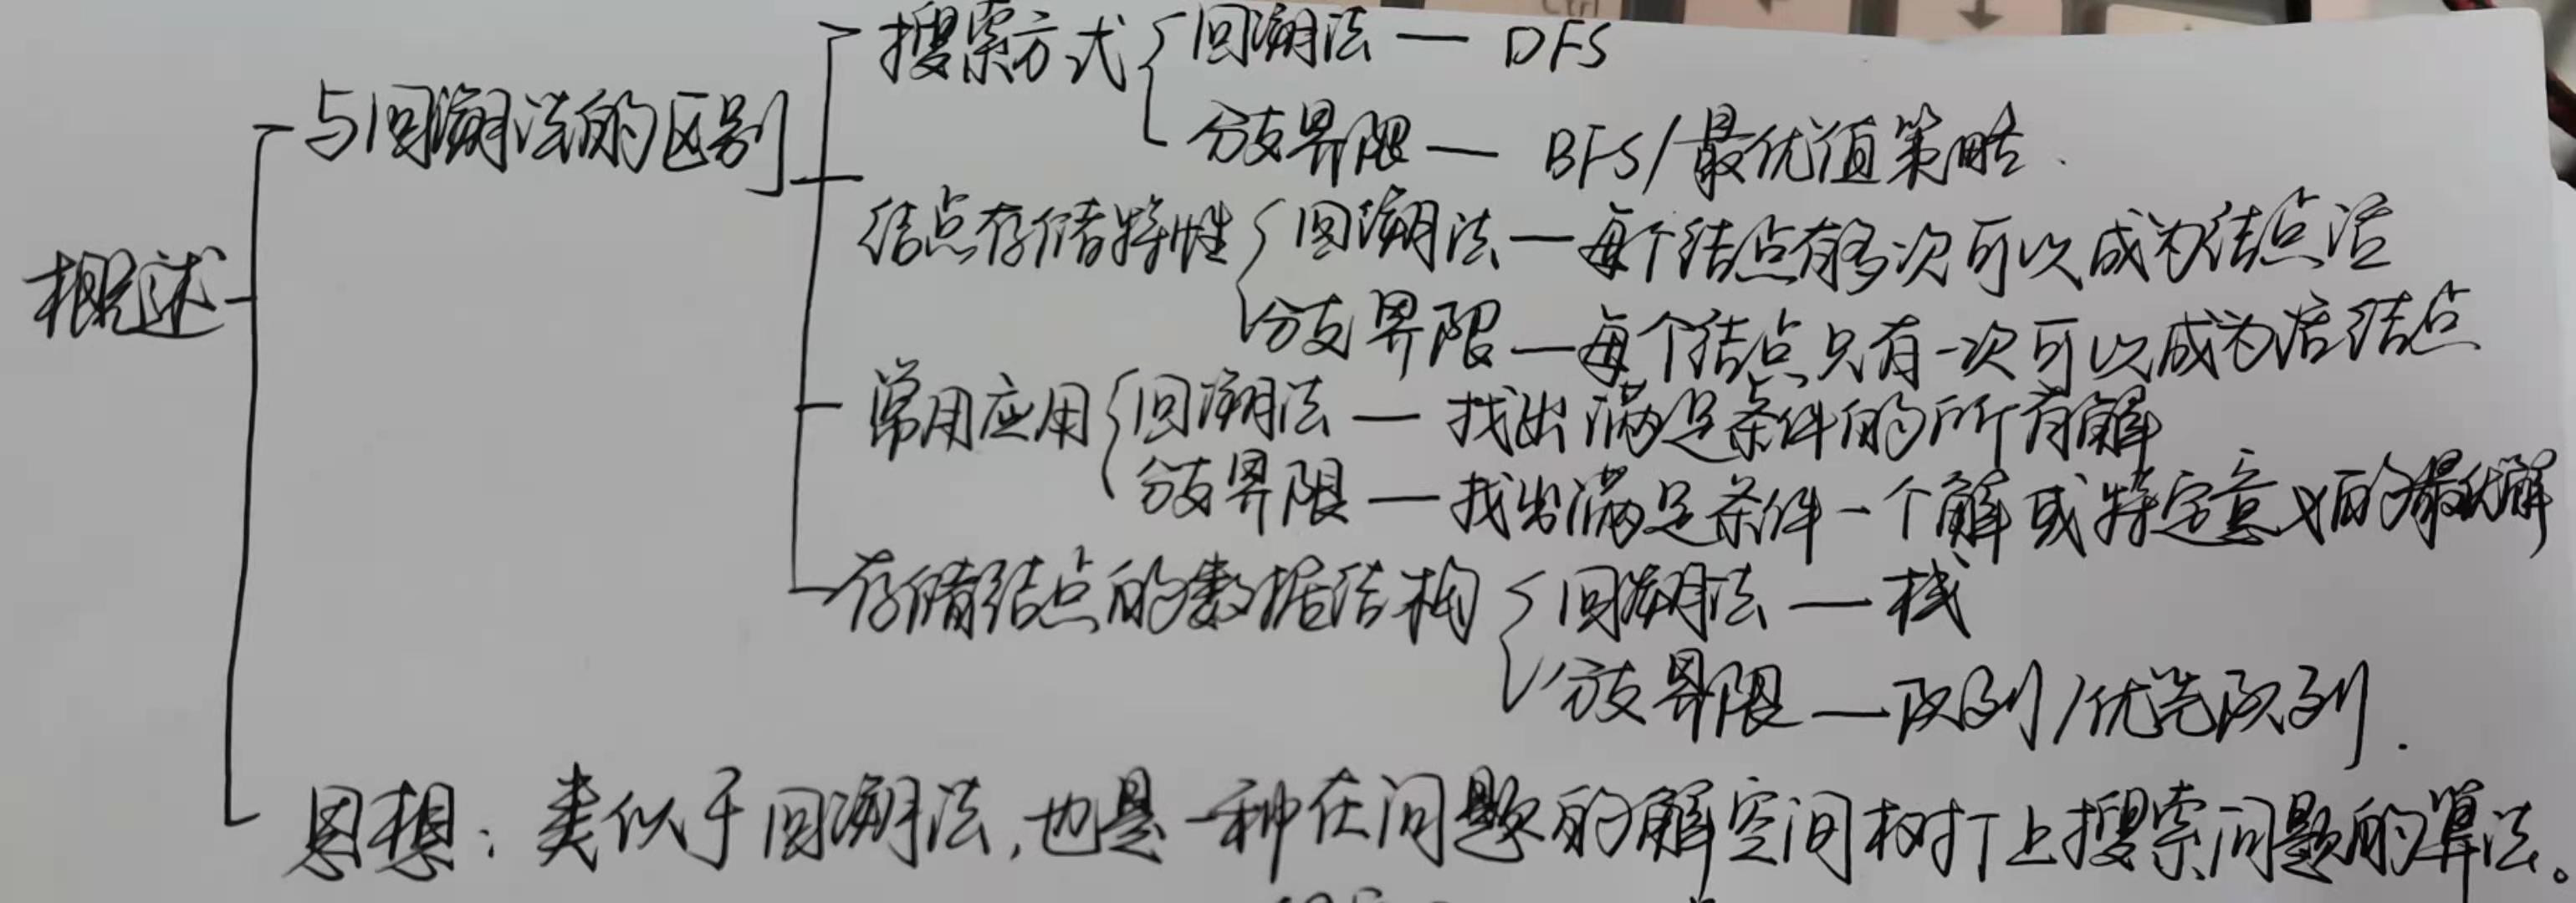 搜索方式 回溯法 — DFS
与回溯法的区别 分支界限 — BFS/最优值策略.
结点存储特性 回溯法 — 每个结点有多次可以成为结点活
概述 分支界限 — 每个结点只有一次可以成为活结点
常用应用 回溯法 — 找出满足条件的所有解
分支界限 — 找出满足条件一个解或特定意义的最优解
存储结点的数据结构 回溯法 — 栈
分支界限 — 队列/优先队列.
思想：类似于回溯法,也是一种在问题的解空间树T上搜索问题的算法。